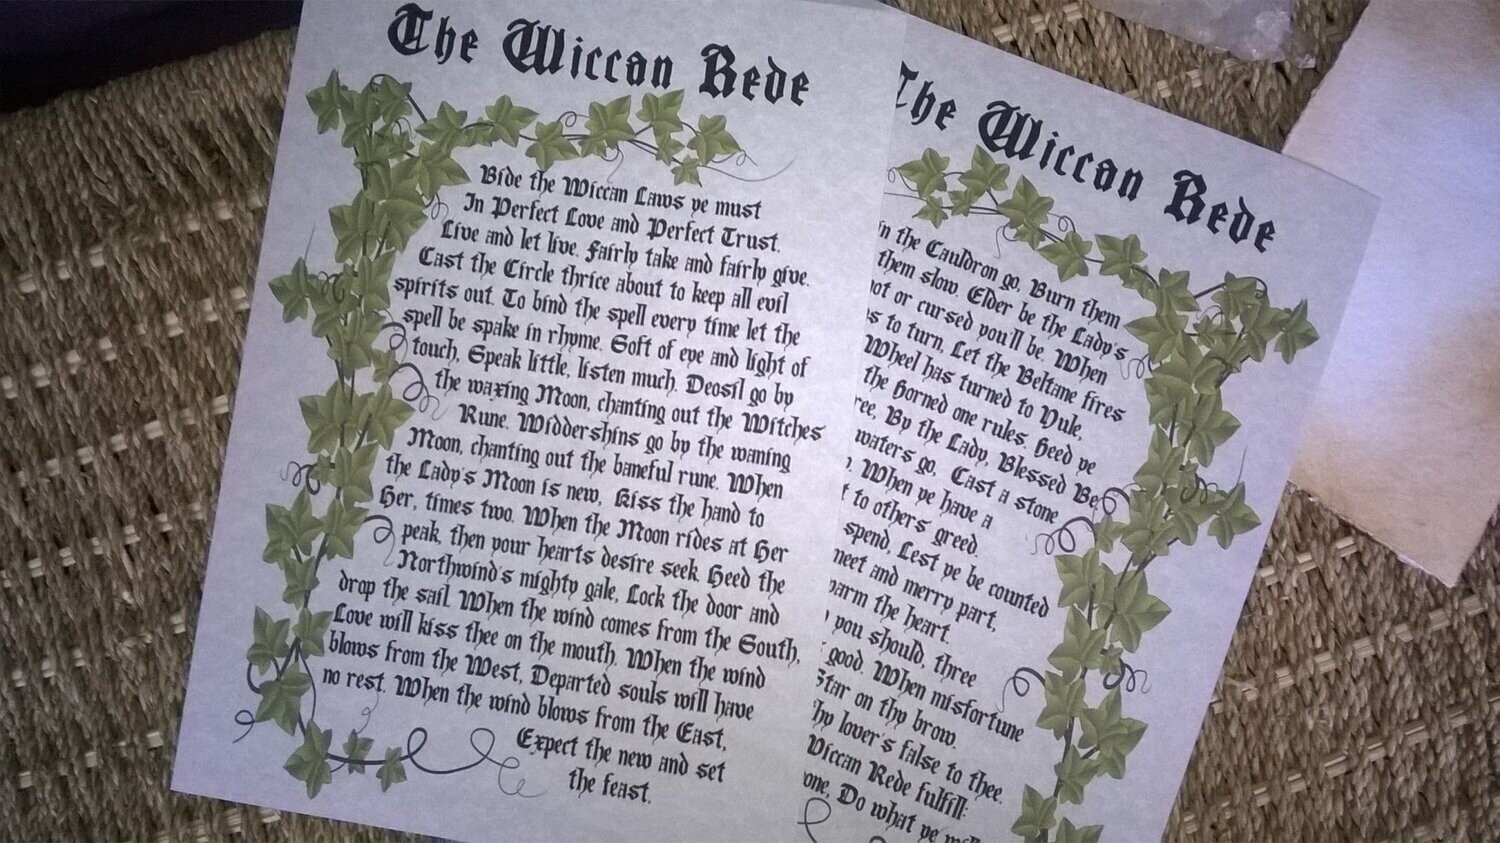 The Wiccan Rede
Bide the Wiccan Laws ye must
In Perfect Love and Perfect Trust.
Live and let live. Fairly take and fairly give.
Cast the Circle thrice about to keep all evil
spirits out. To bind the spell every time let the
spell be spake in rhyme. Soft of eye and light of
touch, Speak little, listen much. Deosil go by
the waxing Moon, chanting out the Witches
Rune. Widdershins go by the waning
Moon, chanting out the baneful rune. When
the Lady's Moon is new, Kiss the hand to
Her, times two. When the Moon rides at Her
peak, then your hearts desire seek. Heed the
Northwind's mighty gale, Lock the door and
drop the sail. When the wind comes from the South,
Love will kiss thee on the mouth. When the wind
blows from the West, Departed souls will have
no rest. When the wind blows from the East,
Expect the new and set
the feast.
The Wiccan Rede
in the Cauldron go, Burn them
them slow. Elder be the Lady's
not or cursed you'll be. When
to turn, Let the Beltane fires
Wheel has turned to Yule,
the Horned one rules. Heed ye
By the Lady, Blessed Be.
waters go, Cast a stone
When ye have a
to others greed.
spend, Lest ye be counted
meet and merry part,
warm the heart.
you should, three
good. When misfortune
Star on thy brow.
thy lover's false to thee.
Wiccan Rede fulfill:
one, Do what ye